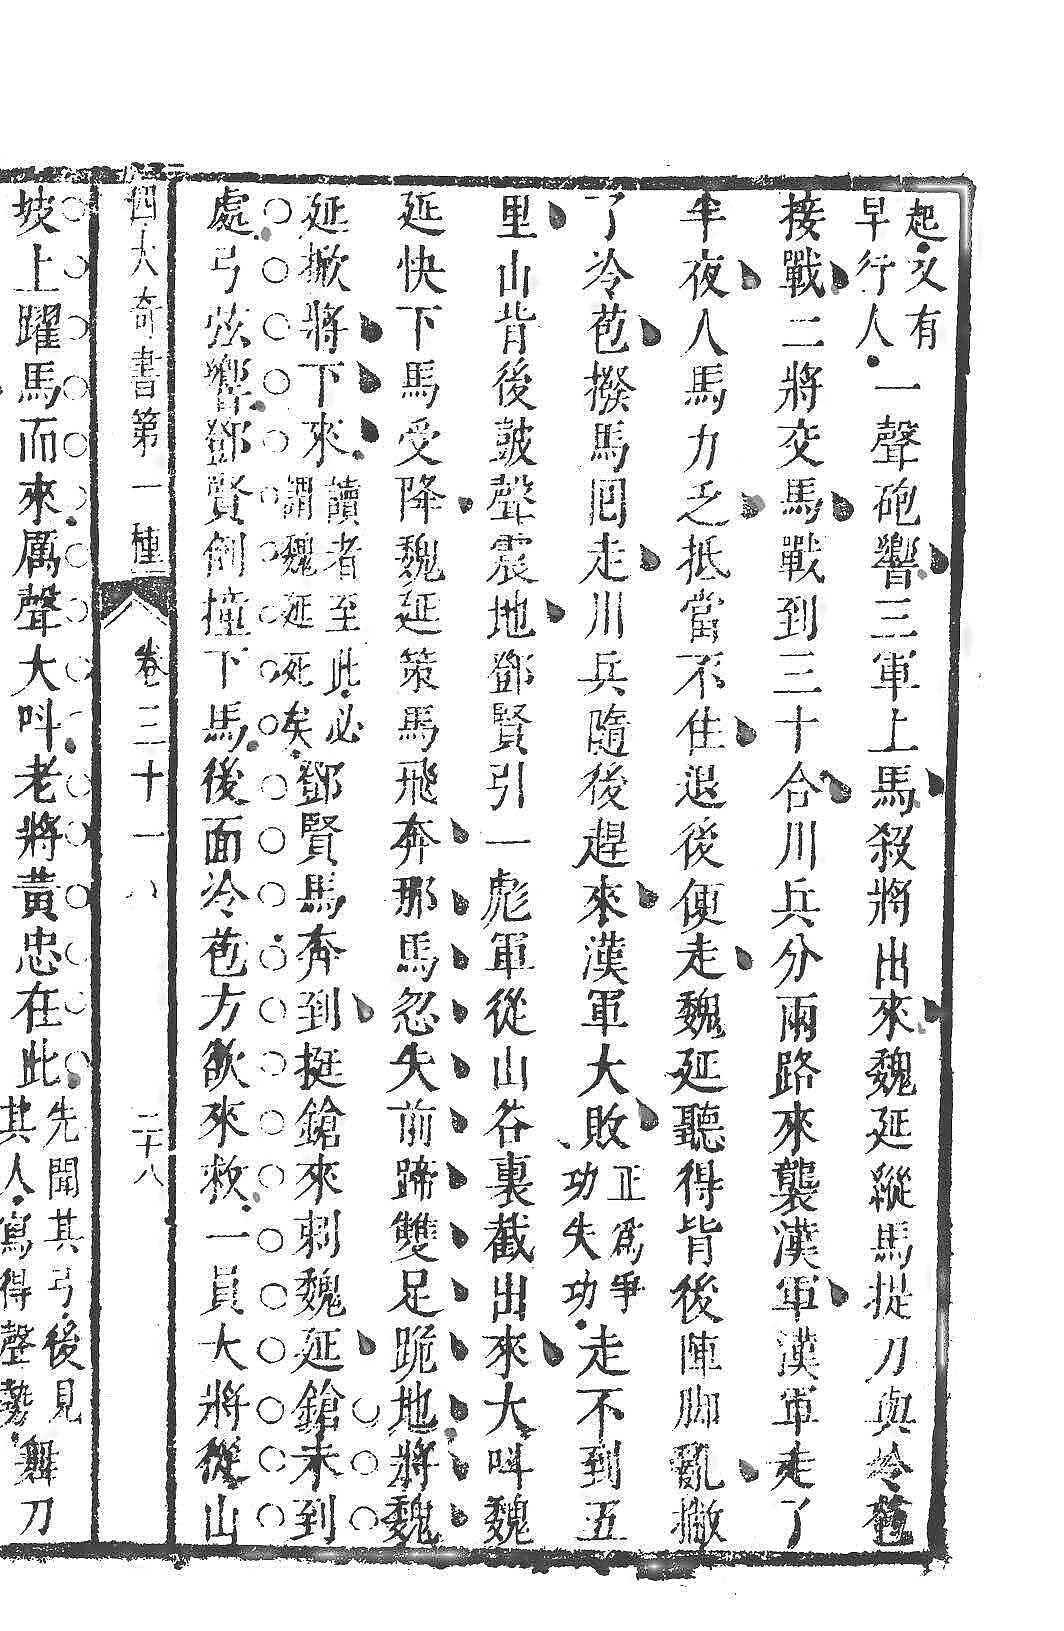 起又有早行人一聲砲響三軍上馬殺將出來魏延縱馬提刀與冷苞
接戰二將交馬戰到三十合川兵分兩路來襲漢軍漢軍走了
半夜人馬力乏抵當不住退後便走魏延聽得背後陣脚亂撇
了冷苞撥馬囘走川兵隨後趕來漢軍大敗正爲爭功失功走不到五
里山背後鼓聲震地鄧賢引一彪軍從山谷裏截出來大呌魏
延快下馬受降魏延策馬飛奔那馬忽失前蹄雙足跪地將魏
延掀將下來讀者至此必謂魏延死矣鄧賢馬奔到挺鎗來刺魏延鎗未到
處弓弦響鄧賢倒撞下馬後面冷苞方欲來救一員大將從山
四大奇書第一種 卷三十一 八 二十八
坡上躍馬而來厲聲大呌老將黃忠在此先聞其弓後見其人寫得聲勢舞刀